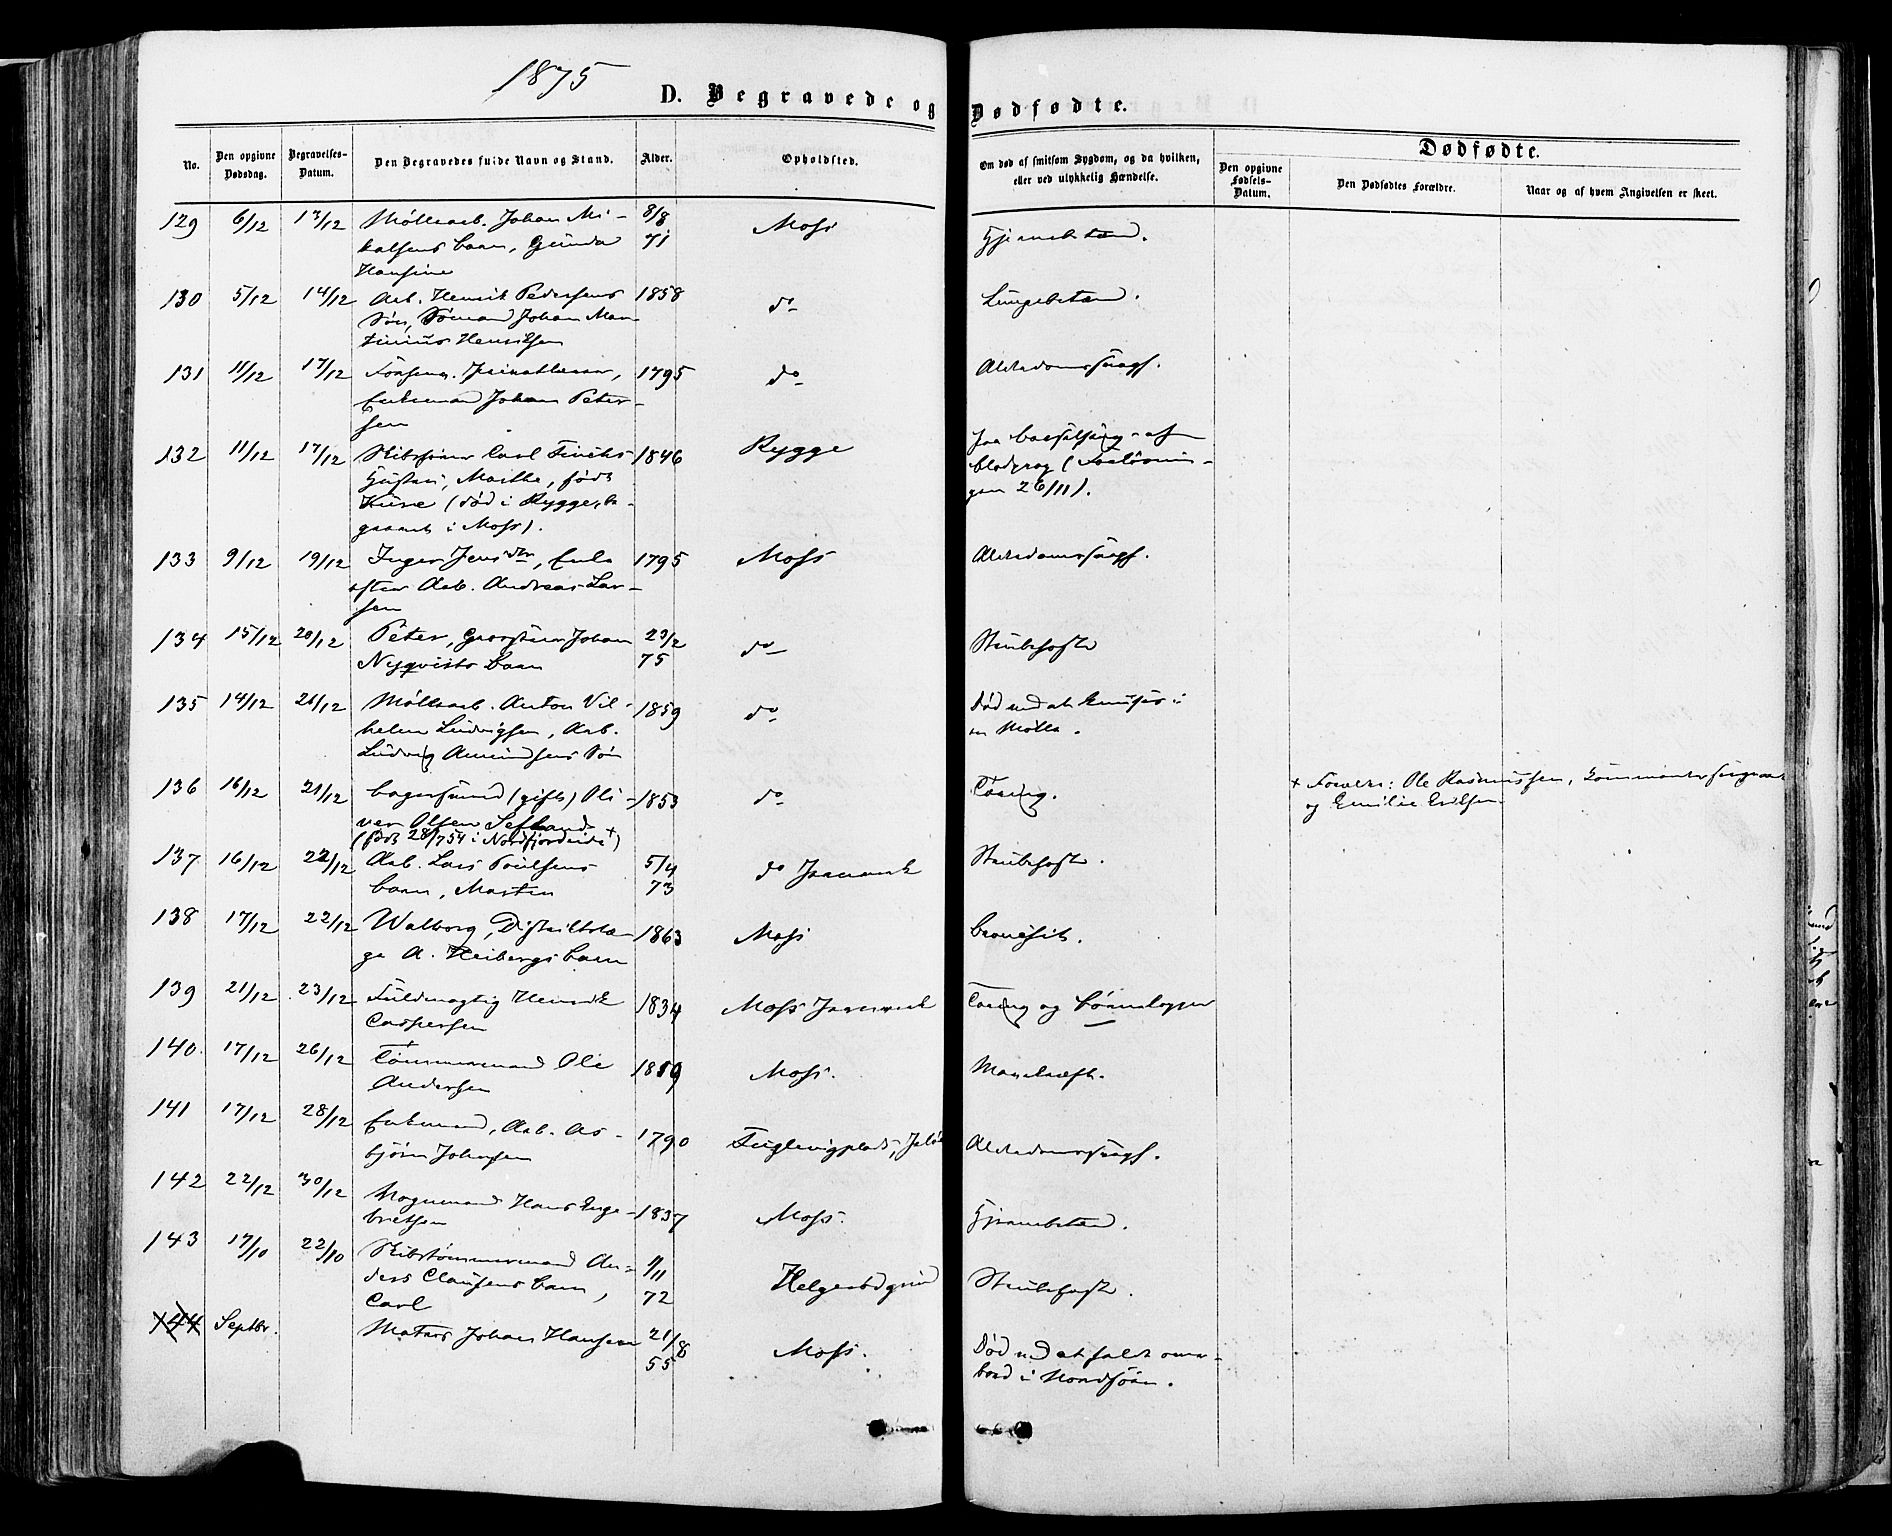 1875
D. Begravede og Dødfødte.
No.
Den opgivne Dødsdag.
Begravelses-Datum.
Den Begravedes fulde Navn og Stand.
Alder.
Opholdsted.
Om død af smitsom Sygdom, og da hvilken, eller ved ulykkelig Hændelse.
Dødfødte.
Den opgivne Fødsels-Datum.
Den Dødfødtes Forældre.
Naar og af hvem Angivelsen er skeet.
129 6/12 13/12 Møllearb. Johan Mi- 8/8 Moss Hjernebetænd.
kalsens barn, Gunda 71
Hansine
130 5/12 14/12 Arb. Henrik Pedersens 1858 do Lungebetænd.
Søn, Sømand Johan Mar-
tinius Henriksen
131 11/12 17/12 1795 do Alderdomssvagh.
Enkemand Johan Peter-
sen
132 11/12 17/12 Skibsfører Carl Fincks 1846 Rygge
Hustru, Marthe, født
(død i Rygge, be-
gravet i Moss).
gen 26/11).
133 9/12 19/12 Inger Jensdtr, Enke 1795 Moss Alderdomssvagh.
efter Arb. Andreas Lar-
sen
134 15/12 20/12 Peter, Johan 23/2 do Strubehoste
Nyqvists barn 75
135 14/12 21/12 Møllearb. Anton Vil- 1859 do Død ved at knuses i
helm Ludvigsen, Arb. en Mølle.
Ludvig Amundsens Søn
136 16/12 21/12 Bagersvend (gift) Oli- 1853 do Tæring. + Forældre: Ole Rasmussen,
ver Olsen og Emilie Eriksen.
(født 28/7 54 i Nordfjordeide +)
137 16/12 22/12 Arb. Lars Poulsens 5/4 do Jernverk Strubehoste.
barn, Marten 73
138 17/12 22/12 Walborg, Distriktslæ- 1863 Moss
ge A. Heibergs barn
139 21/12 23/12 Fuldmægtig Henrik 1834 Moss Jernverk Tæring og Børnekopper
Caspersen
140. 17/12 26/12 Tømmermand Ole Moss.
Andersen
141 17/12 28/12 Enkemand, Arb. As- 1790 Fuglevigplads, Jelø Alderdomssvagh.
bjørn Johnsen
142 22/12 30/12 Vognmand Hans Inge- 1837 Moss. Hjernebetænd.
bretsen
143 17/10 22/10 Skibstømmermand An- Strubehoste.
ders Clausens barn, 11
Carl 72
144 Septbr. Matros Johan Hansen 21/8 Moss. Død ved at falde over-
55 bord i Nordsøen.